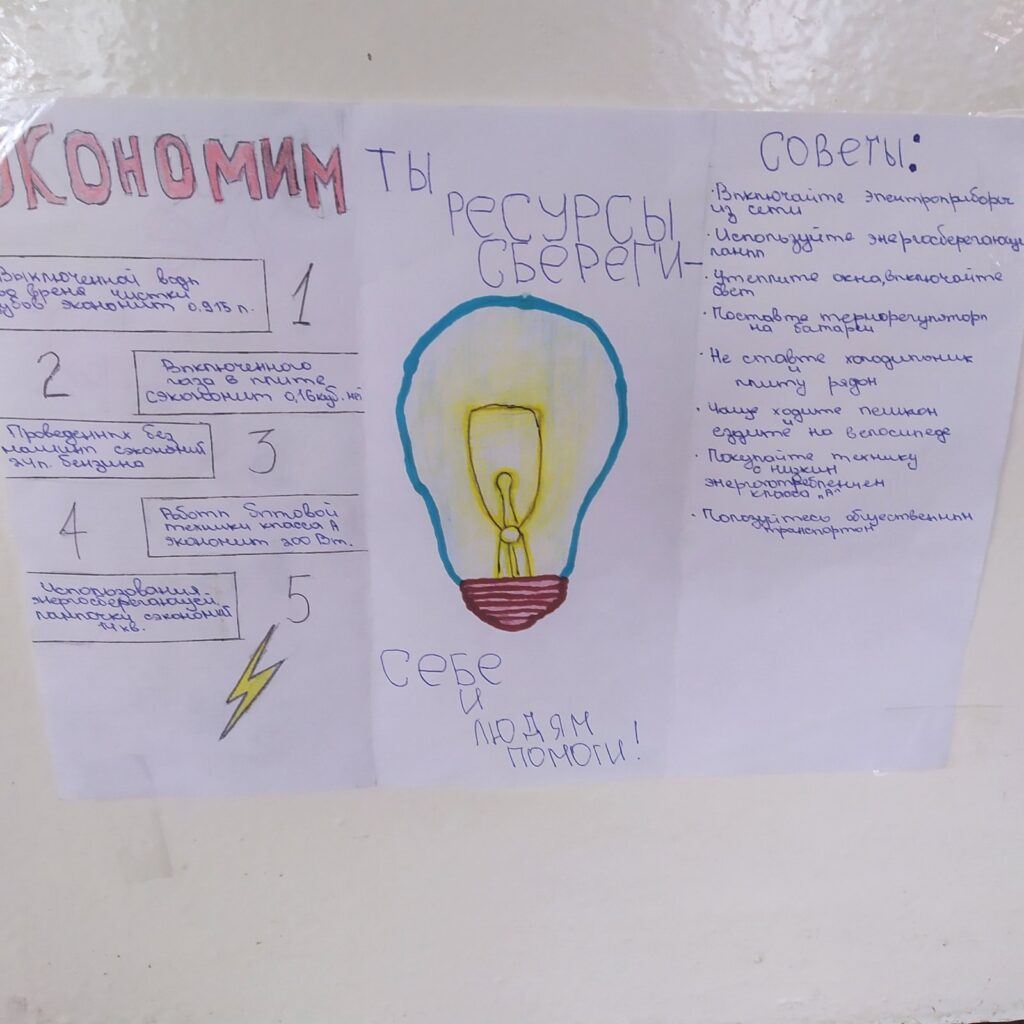 ЭКОНОМИМ
Выключенной воды
во время чистки
зубов экономит 0,915 л.
1
2
Включенного
газа в плите
сэкономит 0,16 куб.
Проведенных без
машины сэкономит
24л. бензина
3
4
Работы бытовой
техники класса А
экономит 200 Вт.
Использования
энергосберегающей
лампочку сэкономит
14 кв.
5
ТЫ
РЕСУРСЫ
СБЕРЕГИ-
СЕБЕ
И
ЛЮДЯМ
ПОМОГИ!
СОВЕТЫ:
·Включайте электроприборы
из сети
·Используйте энергосберегающ
ламп
·Утеплите окна, включайте
свет
·Поставте терморегуляторы
на батареи
·Не ставте холодильник
и
плиту рядом
·Чаще ходите пешком
и
ездийте на велосипеде
·Покупайте технику
с низким
энергопотреблением
класса „А"
·Пользуйтесь общественным
транспортом